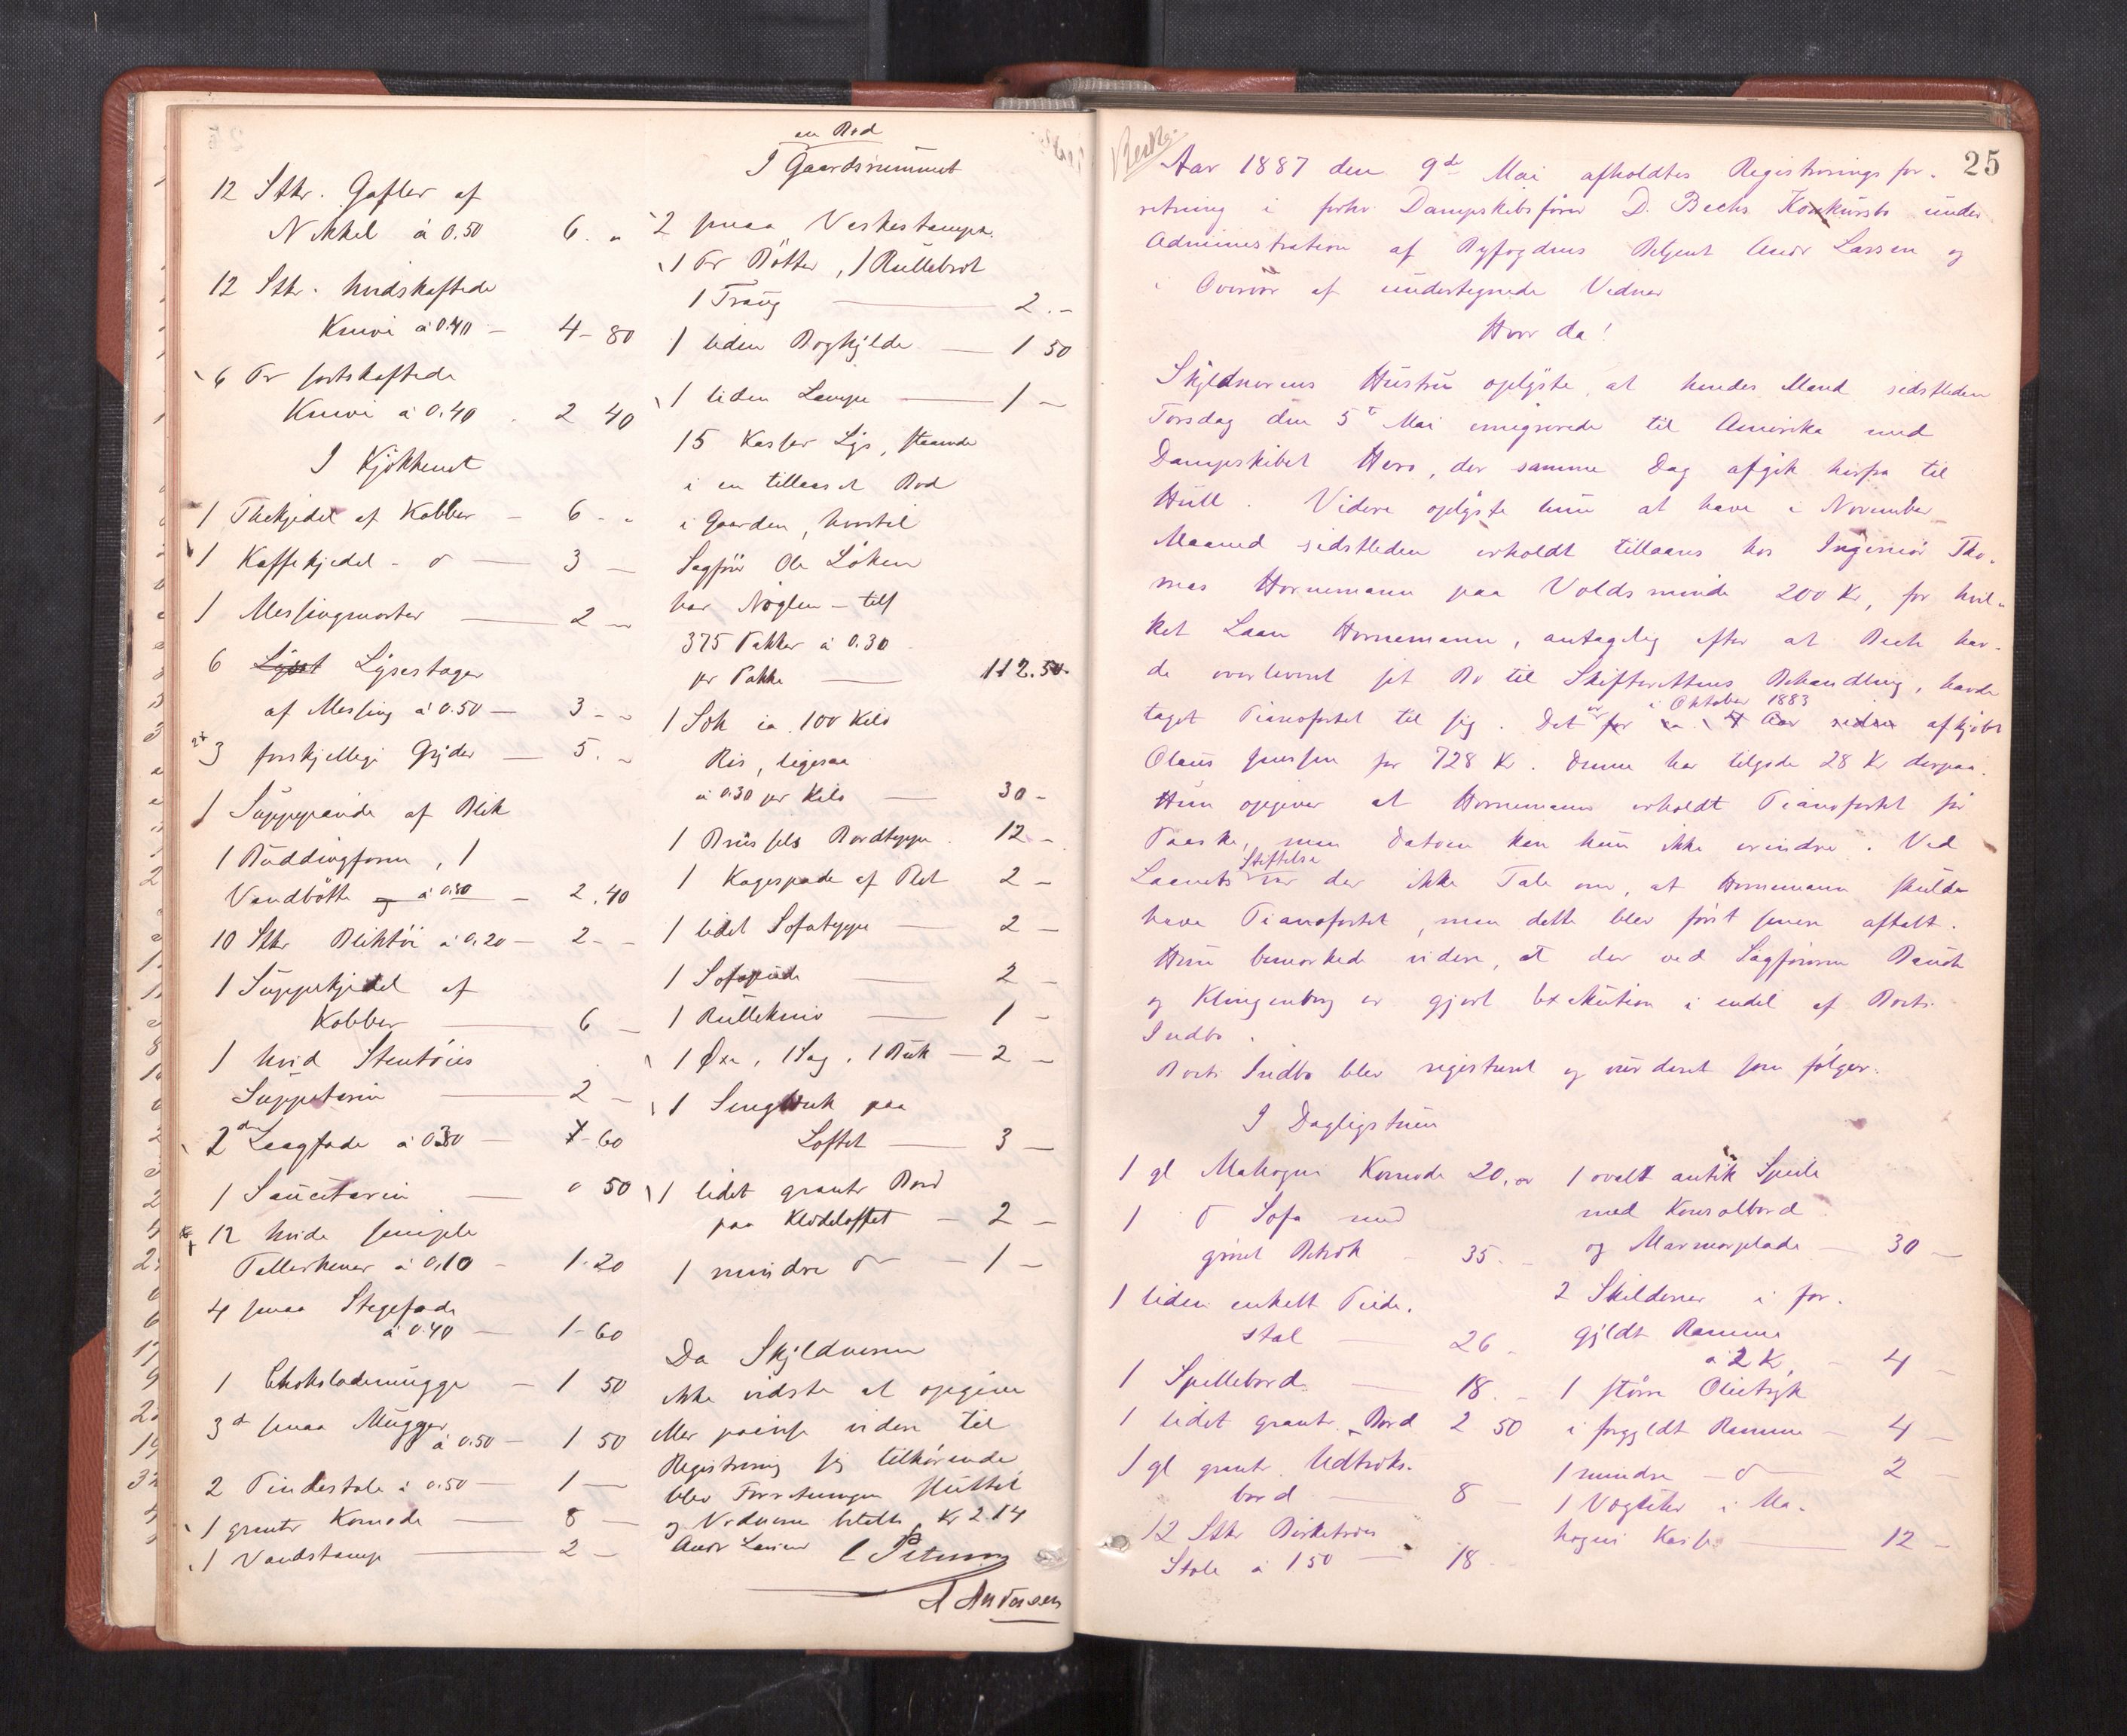 12 Stkr. Gafler af
Nikkel à 0.50 6. "
12 Stkr. hvidskaftede
Knive à 0.40 – 4 – 80
6 Pr sortskaftede
Knive à 0.40 . 2 40
I Kjøkkenet
1 Thekjedel af Kobber – 6 - "
1 Kaffekjedel - do — 3 –
1 Messingmorter — 2 –
6 Lysestager
af Messing à 0.50 – 3 - "
3 forskjellige Gryder — 5. "
1 Suppepande af Blik
1 Buddingform, 1
Vandbøtte og à 0.80 – 2.40
10 Stkr Bliktøi à 0.20 – 2 - –
1 Suppekjedel af
Kobber — 6 –
1 hvid Stentøies
Suppeterin — 2 –
2 do Laagfade à 0.30 – 60
1 Sauceterin — " 50
12 hvide simple
Tallerkener à 0,10 – 1.20
4 smaa Stegefade
à 0.40 — 1 – 60
1 Chokolademugge – 1 50
3 do smaa Mugger
à 0.50 – 1 50
2 Pindestole à 0.50 – 1 —
1 grantr Komode — 8 –
1 Vandstampe — 2 –
en Bod
I Gaardsrummet
2 smaa Vaskestampe.
1 Pr Bøtter, 1 Rullebret
1 Traug — 2. –
1 liden Boghylde — 1 50
1 liden Lampe — 1 –
15 Kasser Lys, staaende
i en tillaaset Bod
i Gaarden, hvortil
Sagfører Ole Løken
har Nøglen – tils
375 Pakker à 0.30
pr Pakke — 112.50.
1 Sæk ca. 100 Kilo
Ris, ligesaa
à 0.30 per Kilo — 30 –
1 Brüssels Bordteppe . 12 –
1 Kagespade af Plet 2 –
1 lidet Sofateppe — 2 –
1 Sofapude — 2 –
1 Rullekniv — 1 –
1 Øxe, 1 Sag, 1 Buk — 2 –
1 paa
Loftet — 3 –
1 lidet grantr Bord
paa Klædeloftet – 2 –
1 mindre do – 1 –
Da Skyldneren
ikke vidste at opgive
videre til
Registrering sig tilhørende
blev Forretningen sluttet
og Vidnerne betalte Kr 2.14
Andr Larsen C Petersen
A Andersen
Bechs
25
Aar 1887 den 9de Mai afholdtes Registreringsfor-
retning i forhv Dampskibsfører D. Bechs Konkursbo under
Administration af Byfogdens Betjent Andr Larsen og
i Overvær af undertegnede Vidner
Hvor da!
Skyldnerens Hustru oplyste, at hendes Mand sidstleden
Torsdag den 5te Mai emigrerede til Amerika med
Dampskibet Hero, der samme Dag afgik herfra til
Hull. Videre oplyste hun at have i November
Maaned sidstleden erholdt tillaans hos Ingeniør Tho-
mas Hornemann paa Voldsminde 200 Kr, for hvil-
ket Laan Hornemann, antagelig efter at Bech hav-
de overleveret sit Bo til Skifterettens Behandling, havde
taget Pianofortet til sig. Det er i Oktober 1883 afkjøbt
Olaus for 728 Kr. Denne har tilgode 28 Kr derpaa.
Hun opgiver at Hornemann erholdt Pianofortet før
Paaske, men Datoen kan hun ikke erindre. Ved
Laanets Stiftelse var der ikke Tale om, at Hornemann skulde
have Pianofortet, men dette blev først senere aftalt.
Hun bemærkede videre, at der ved Sagførerne
og Klingenberg er gjort Exekution i endel af Boets
Indbo.
Boets Indbo blev registreret og vurderet som følger:
I Dagligstuen
1 gl Mahogni Komode 20,00
1 do Sofa med
grønt Betræk – 35. –
1 liden enkelt Pinde-
stol — 26 –
1 Spillebord — 18. –
1 lidet grantr. Bord 2 50
1 gl grantr. Udtræks-
bord — 8 –
12 Stkr Birketræes
Stole à 1 50 — 18 –
1 ovalt antik Speile
med Konsolbord
og Marmorplade — 30 –
2 Skilderier i for-
gyldt Ramme
à 2 Kr – 4 –
1 større Olietryk
i forgyldt Ramme – 4 –
1 mindre – do — 2 –
1 Vægteur i Ma-
hogni Kasse — 12 –